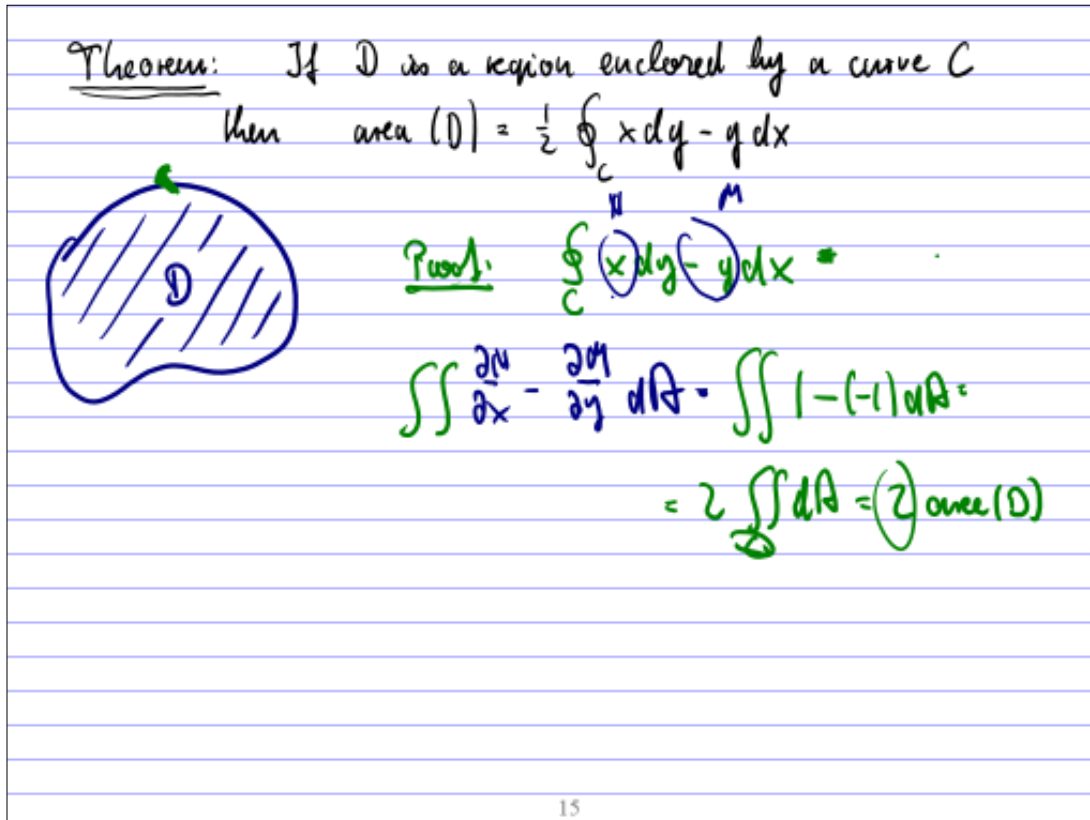 Theorem: If D is a region enclosed by a curve C
then area (D) = ½ ∮_C x dy - y dx
N M
D
Proof: ∮_C (x) dy (- y) dx =
∬ ∂N/∂x - ∂M/∂y dA = ∬ 1 - (-1) dA =
= 2 ∬_D dA = (2) area (D)
15